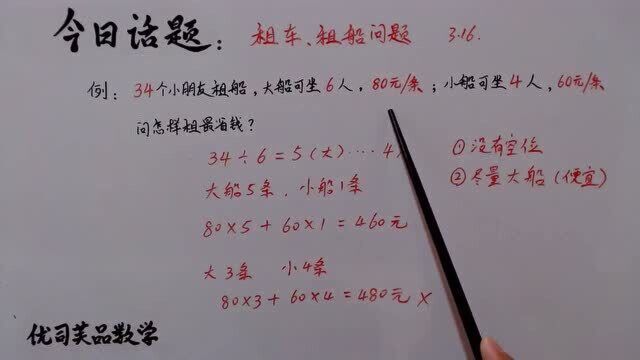 今日话题：租车、租船问题 3.16.
例：34个小朋友租船，大船可坐6人，80元/条；小船可坐4人，60元/条
问怎样租最省钱？
34÷6=5(大)····4
大船5条．小船1条
80×5+60×1=460元
大3条 小4条
80×3+60×4=480元 ×
①没有空位
②尽量大船(便宜)
优司芙品数学